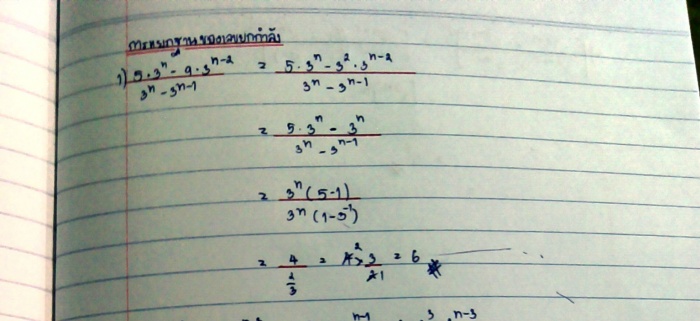 การแยกฐานของเลขยกกำลัง
1) 5·3ⁿ - 9·3ⁿ⁻² / 3ⁿ - 3ⁿ⁻¹ = 5·3ⁿ - 3²·3ⁿ⁻² / 3ⁿ - 3ⁿ⁻¹
= 5·3ⁿ - 3ⁿ / 3ⁿ - 3ⁿ⁻¹
= 3ⁿ(5-1) / 3ⁿ(1-3⁻¹)
= 4 / (2/3) = 4² × 3 / 2 1 = 6